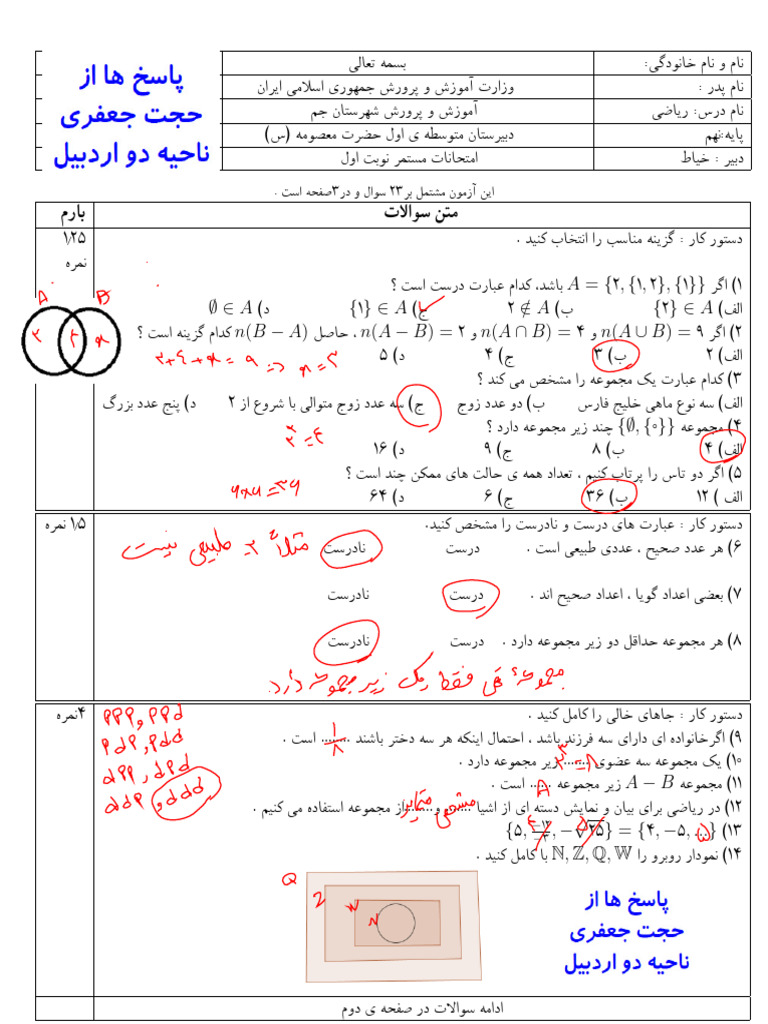 نام و نام خانودگی:
بسمه تعالی
پاسخ ها از
حجت جعفری
ناحیه دو اردبیل
نام پدر :
وزارت آموزش و پرورش جمهوری اسلامی ایران
نام درس: ریاضی
آموزش و پرورش شهرستان جم
پایه:نهم
دبیرستان متوسطه ی اول حضرت معصومه (س)
دبیر : خیاط
امتحانات مستمر نوبت اول
این آزمون مشتمل بر۲۳ سوال و در۳صفحه است .
متن سوالات
بارم
دستور کار : گزینه مناسب را انتخاب کنید .
۱٫۲۵
نمره
۱) اگر A = {۲, {۱, ۲}, {۱}} باشد، کدام عبارت درست است ؟
الف) {۲} ∈ A ب) ۲ ∉ A ج) {۱} ∈ A د) ∅ ∈ A
A B
۲) اگر n(A ∪ B) = ۹ و n(A ∩ B) = ۴ و n(A − B) = ۲ ، حاصل n(B − A) کدام گزینه است ؟
الف) ۲ ب) ۳ ج) ۴ د) ۵
۲+۴+x=۹ ⇒ x=۳
۳) کدام عبارت یک مجموعه را مشخص می کند ؟
الف) سه نوع ماهی خلیج فارس ب) دو عدد زوج ج) سه عدد زوج متوالی با شروع از ۲ د) پنج عدد بزرگ
۴) مجموعه {∅, {۰}} چند زیر مجموعه دارد ؟
الف) ۴ ب) ۸ ج) ۹ د) ۱۶
۲²=۴
۵) اگر دو تاس را پرتاب کنیم ، تعداد همه ی حالت های ممکن چند است ؟
الف ) ۱۲ ب) ۳۶ ج) ۶ د) ۶۴
۶×۶=۳۶
دستور کار : عبارت های درست و نادرست را مشخص کنید.
۱٫۵ نمره
۶) هر عدد صحیح ، عددی طبیعی است . درست نادرست
مثلاً ۲- طبیعی نیست
۷) بعضی اعداد گویا ، اعداد صحیح اند . درست نادرست
۸) هر مجموعه حداقل دو زیر مجموعه دارد . درست نادرست
مجموعهٔ تهی فقط یک زیر مجموعه دارد.
دستور کار : جاهای خالی را کامل کنید .
۴نمره
۹) اگرخانواده ای دارای سه فرزند باشد ، احتمال اینکه هر سه دختر باشند ..۱/۸.. است .
پپپ و پپد
پدپ و پدد
دپپ و دپد
ددپ و ددد
۱۰) یک مجموعه سه عضوی ...... زیر مجموعه دارد .
۲³=۸
۱۱) مجموعه A − B زیر مجموعه ..A.. است .
۱۲) در ریاضی برای بیان و نمایش دسته ای از اشیا ..مشخص.. و ..متمایز.. از مجموعه استفاده می کنیم .
۱۳) {۵, , −√۲۵} = {۴, −۵, ...}
۵
۱۴) نمودار روبرو را ℕ, ℤ, ℚ, 𝕎 با کامل کنید .
Q
Z
W
N
پاسخ ها از
حجت جعفری
ناحیه دو اردبیل
ادامه سوالات در صفحه ی دوم